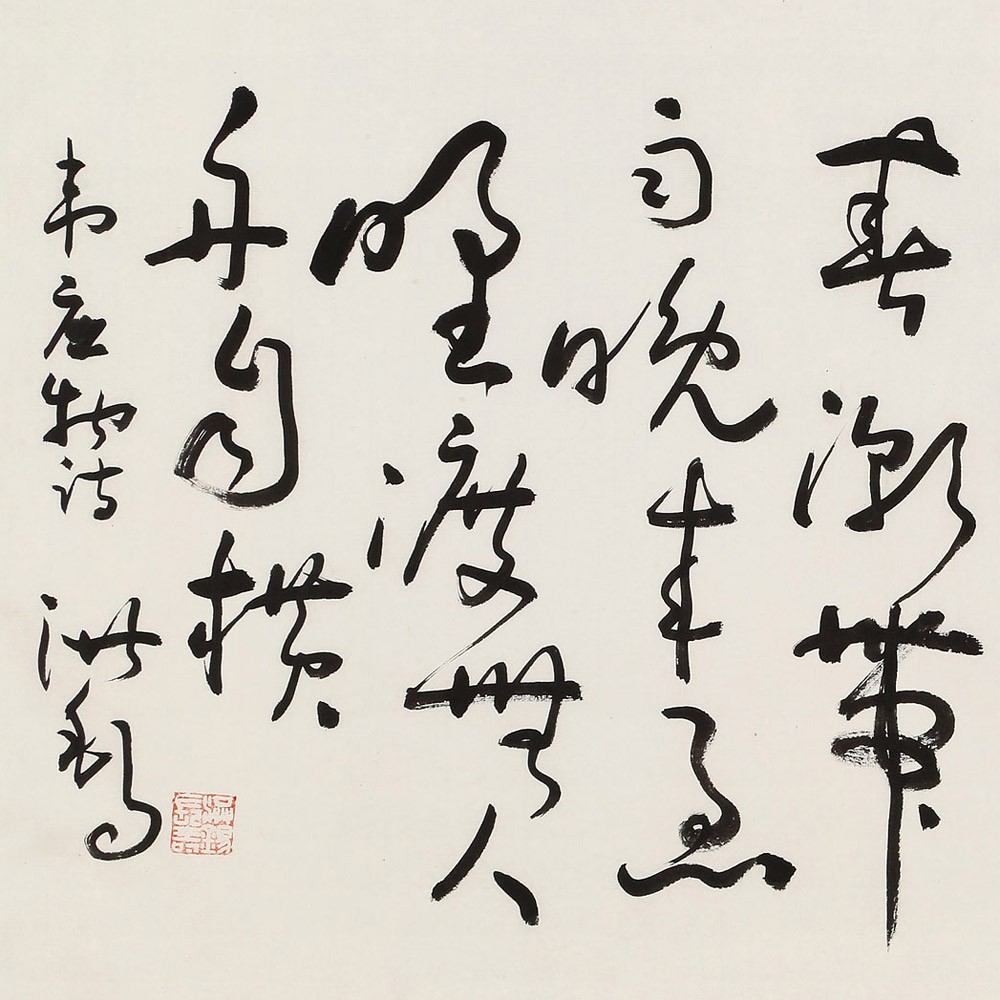 春潮帶
雨晚来急
野渡無人
舟自横
韦应物诗